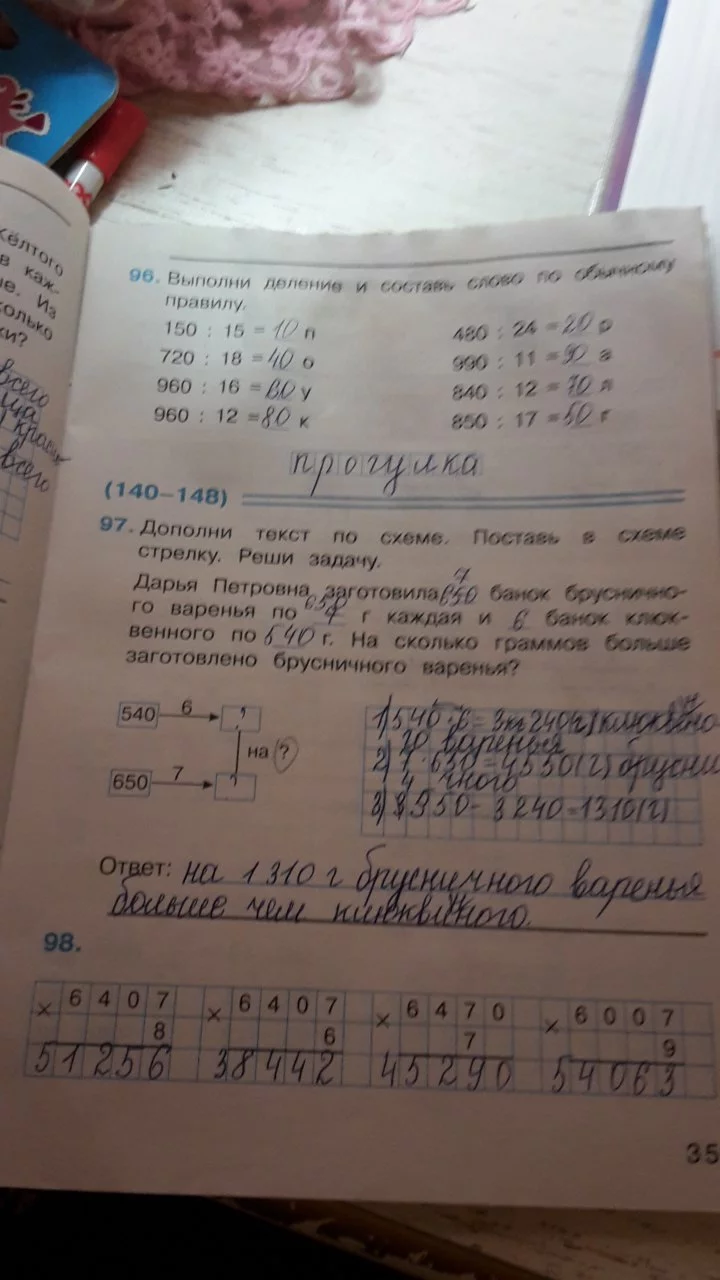 жёлтого
в каж-
Из
колько
ки?
всего
всего
96. Выполни деление и составь слово по обычному
правилу.
150 : 15 = 10 п 480 : 24 = 20 р
720 : 18 = 40 о 990 : 11 = 90 а
960 : 16 = 60 у 840 : 12 = 70 л
960 : 12 = 80 к 850 : 17 = 50 г
прогулка
(140–148)
97. Дополни текст по схеме. Поставь в схеме
стрелку. Реши задачу.
7
Дарья Петровна заготовила 650 банок бруснично-
го варенья по 650 г каждая и 6 банок клюк-
венного по 540 г. На сколько граммов больше
заготовлено брусничного варенья?
540 6 ?
на ?
650 7
1) 540·6=3240(г) клюквено
го варенья
2) 7·650=4550(г) брусни
чного
3) 4550-3240=1310(г)
Ответ: на 1310 г брусничного варенья
больше чем клюквеного.
98.
× 6407 × 6407 × 6470 × 6007
8 6 7 9
51256 38442 45290 54063
35